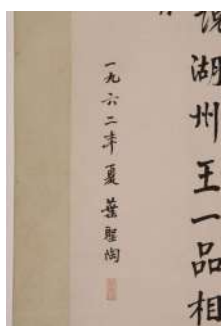 說湖州王一品相
一九六二年夏 葉聖陶